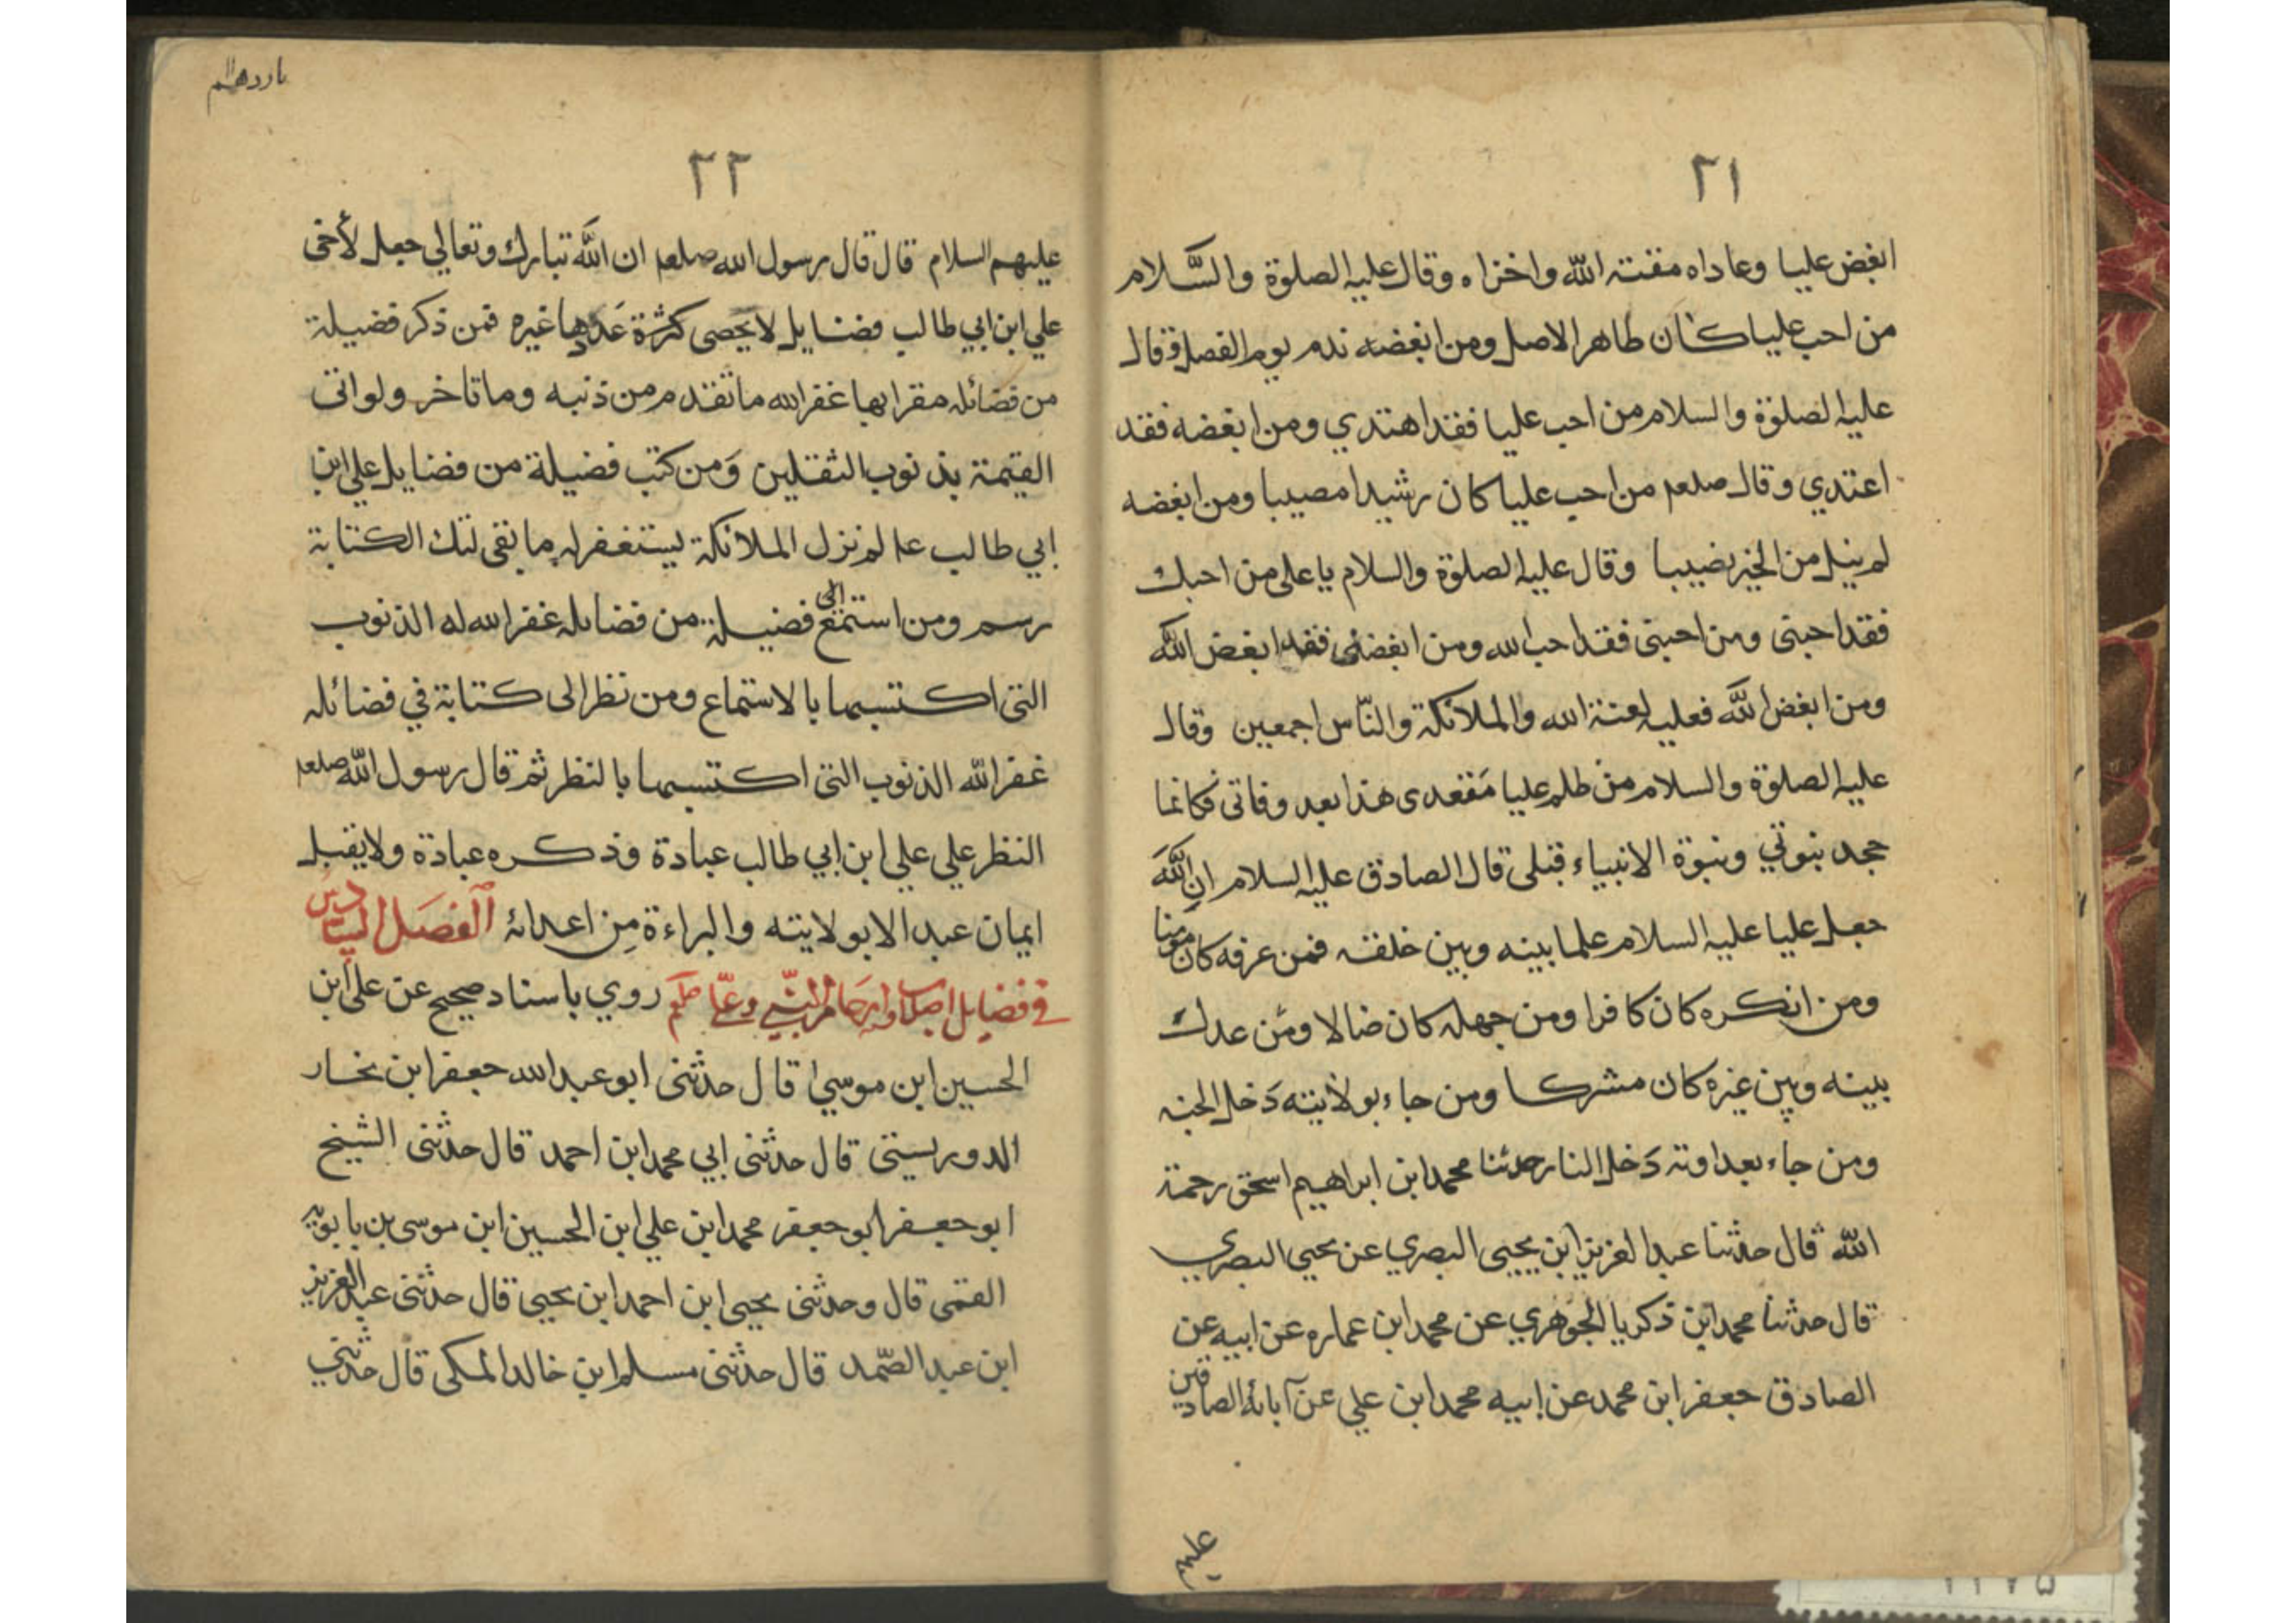 ٢١
ابغض عليا وعاداه مقته الله واخزاه وقال عليه الصلوة والسَّلام
من احب عليا كان طاهر الاصل ومن ابغضه ندم يوم الفصل وقال
عليه الصلوة والسلام من احب عليا فقد اهتدي ومن ابغضه فقد
اعتدي وقال صلعم من احب عليا كان رشيدا مصيبا ومن ابغضه
لم ينل من الخير نصيبا وقال عليه الصلوة والسلام يا علي من احبك
فقد احبنى ومن احبنى فقد احب الله ومن ابغضنى فقد ابغض الله
ومن ابغض الله فعليه لعنة الله والملائكة والنّاس اجمعين وقال
عليه الصلوة والسلام من ظلم عليا مَقعدى هذا بعد وفاتى فكانما
جحد بنوتي ونبوة الانبياء قبلى قال الصادق عليه السلام ان اللهَ
جعل عليا عليه السلام علما بينه وبين خلقه فمن عرفه كان مومنا
ومن انكره كان كافرا ومن جهله كان ضالا ومن عدك
بينه وبين غيره كان مشركا ومن جاء بولايته دَخل الجنه
ومن جاء بعداوته دَخل النار حدثنا محمد ابن ابراهيم اسحق رحمة
الله قال حدثنا عبد العزيز ابن يحيى البصري عن يحيي البصري
قال حدثنا محمد ابن ذكريا الجوهري عن محمد ابن عماره عن ابيه عن
الصادق جعفر ابن محمد عن ابيه محمد ابن علي عن آبائه الصادقين
عليهم
٢٢
عليهم السلام قال قال رسول الله صلعم ان اللهَ تبارك وتعالي جعل لأخى
علي ابن ابي طالب فضايل لا يحصى كثرة عَددها غيره فمن ذكر فضيلة
من فضائله مقرا بها غفر الله ما تقدم من ذنبه وما تاخر ولو اتى
القيمة بذنوب الثقلين وَمن كتب فضيلة من فضايل علي ابن
ابي طالب عا لم نزل الملائكة يستغفر له ما بقى لتك الكتابة
رسم ومن استمع الى فضيلة من فضائله غفر الله له الذنوب
التى اكتسبها بالاستماع ومن نظر الى كتابة في فضائله
غفر الله الذنوب التى اكتسبها بالنظر ثم قال رسول الله صلعم
النظر علي علي ابن ابي طالب عبادة وذكره عبادة ولا يقبل
ايمان عبد الا بولايته والبراءة مِن اعدائه الفصَل السادس
في فضايل اصلاب وارحام النبي وعلي صلعم روي باسناد صحيح عن على ابن
الحسين ابن موسي قال حدثنى ابو عبد الله جعفر ابن نحسار
الدوريستى قال حدثنى ابي محمد ابن احمد قال حدثنى الشيخ
ابو جعفر ابو جعفر محمد ابن علي ابن الحسين ابن موسى بن بابويه
القمى قال وحدثنى يحيى ابن احمد ابن يحيى قال حدثنى عبد العزيز
ابن عبد الصّمد قال حدثنى مسلم ابن خالد المكى قال حدثني